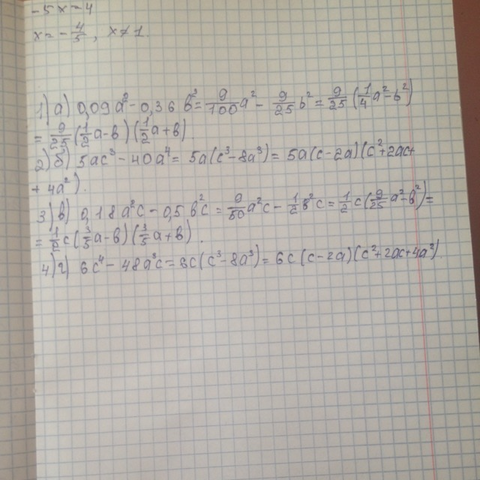 -5x=4
x=-4/5, x≠1.
1) а) 0,09a² - 0,36 b² = 9/100 a² - 9/25 b² = 9/25 (1/4 a² - b²)
= 9/25 (1/2 a - b) (1/2 a + b).
2) б) 5ac³ - 40a⁴ = 5a (c³ - 8a³) = 5a (c - 2a) (c² + 2ac +
+ 4a²).
3) в) 0,18a²c - 0,5b²c = 9/50 a²c - 1/2 b²c = 1/2 c (9/25 a² - b²) =
= 1/2 c (3/5 a - b) (3/5 a + b).
4) г) 6c⁴ - 48a³c = 6c (c³ - 8a³) = 6c (c - 2a) (c² + 2ac + 4a²)